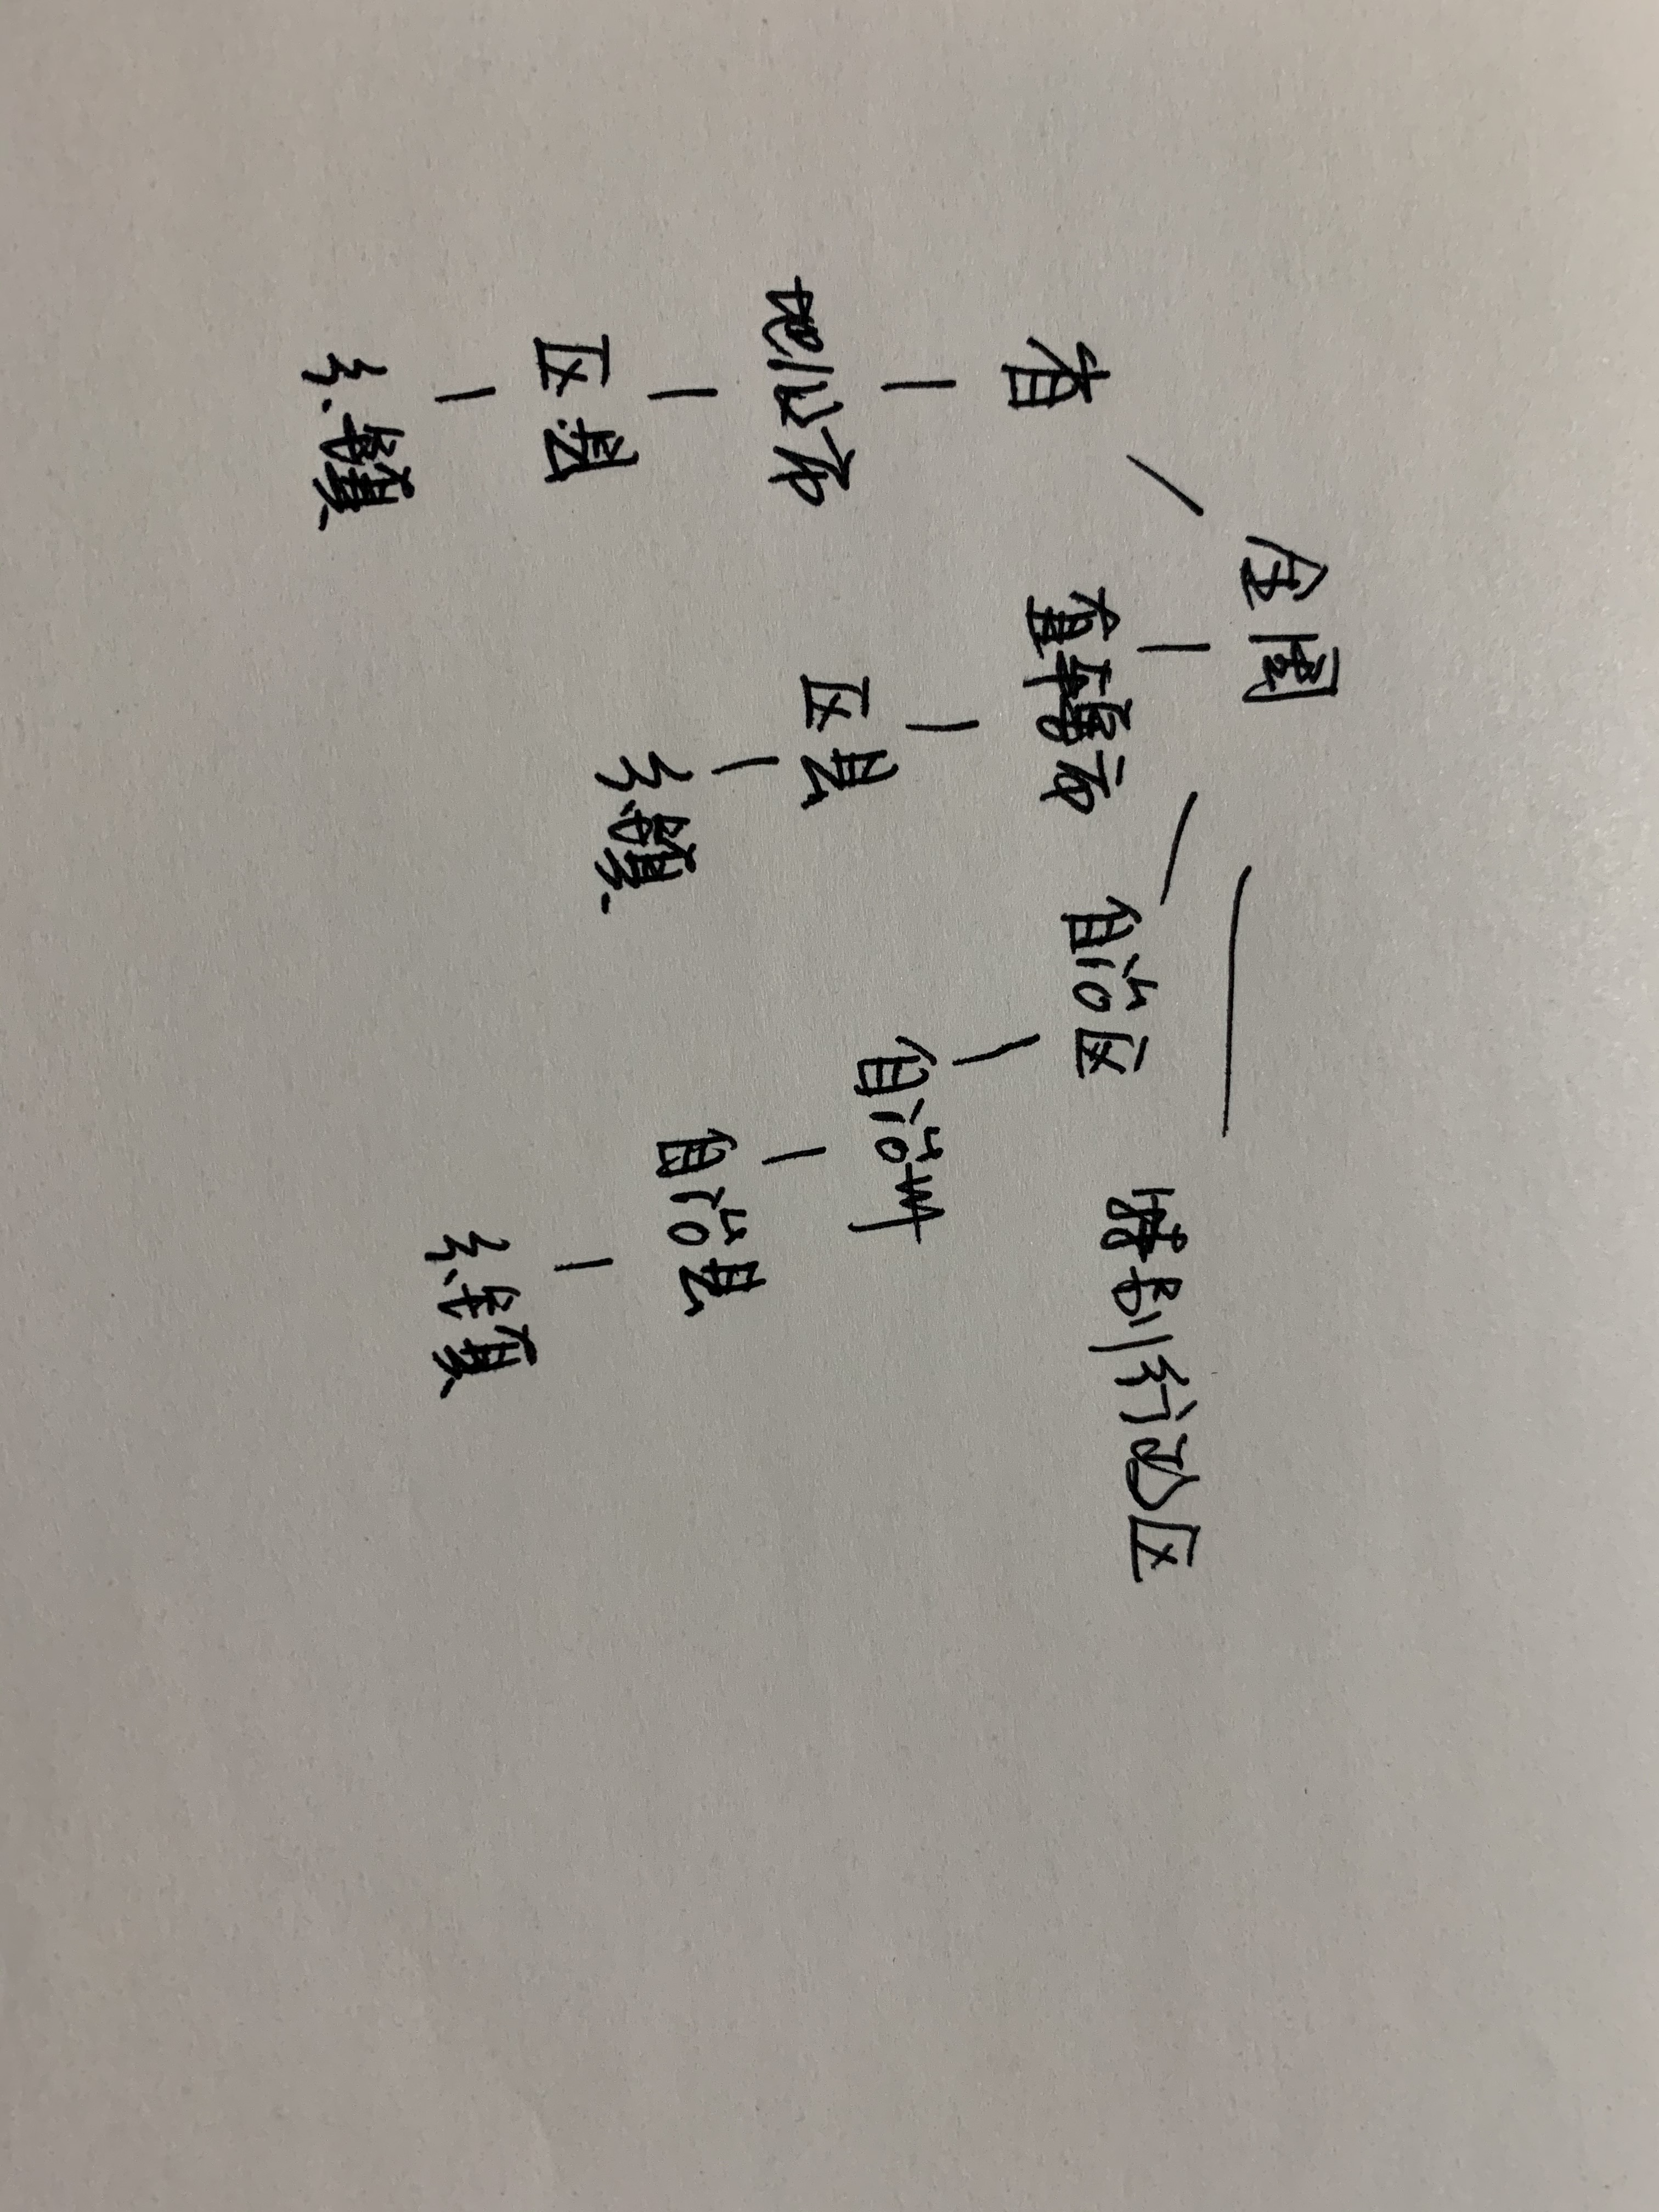 全国
省 直辖市 自治区 特别行政区
地级市 区 县 自治州
区.县 乡、镇 自治县
乡、镇 乡、镇